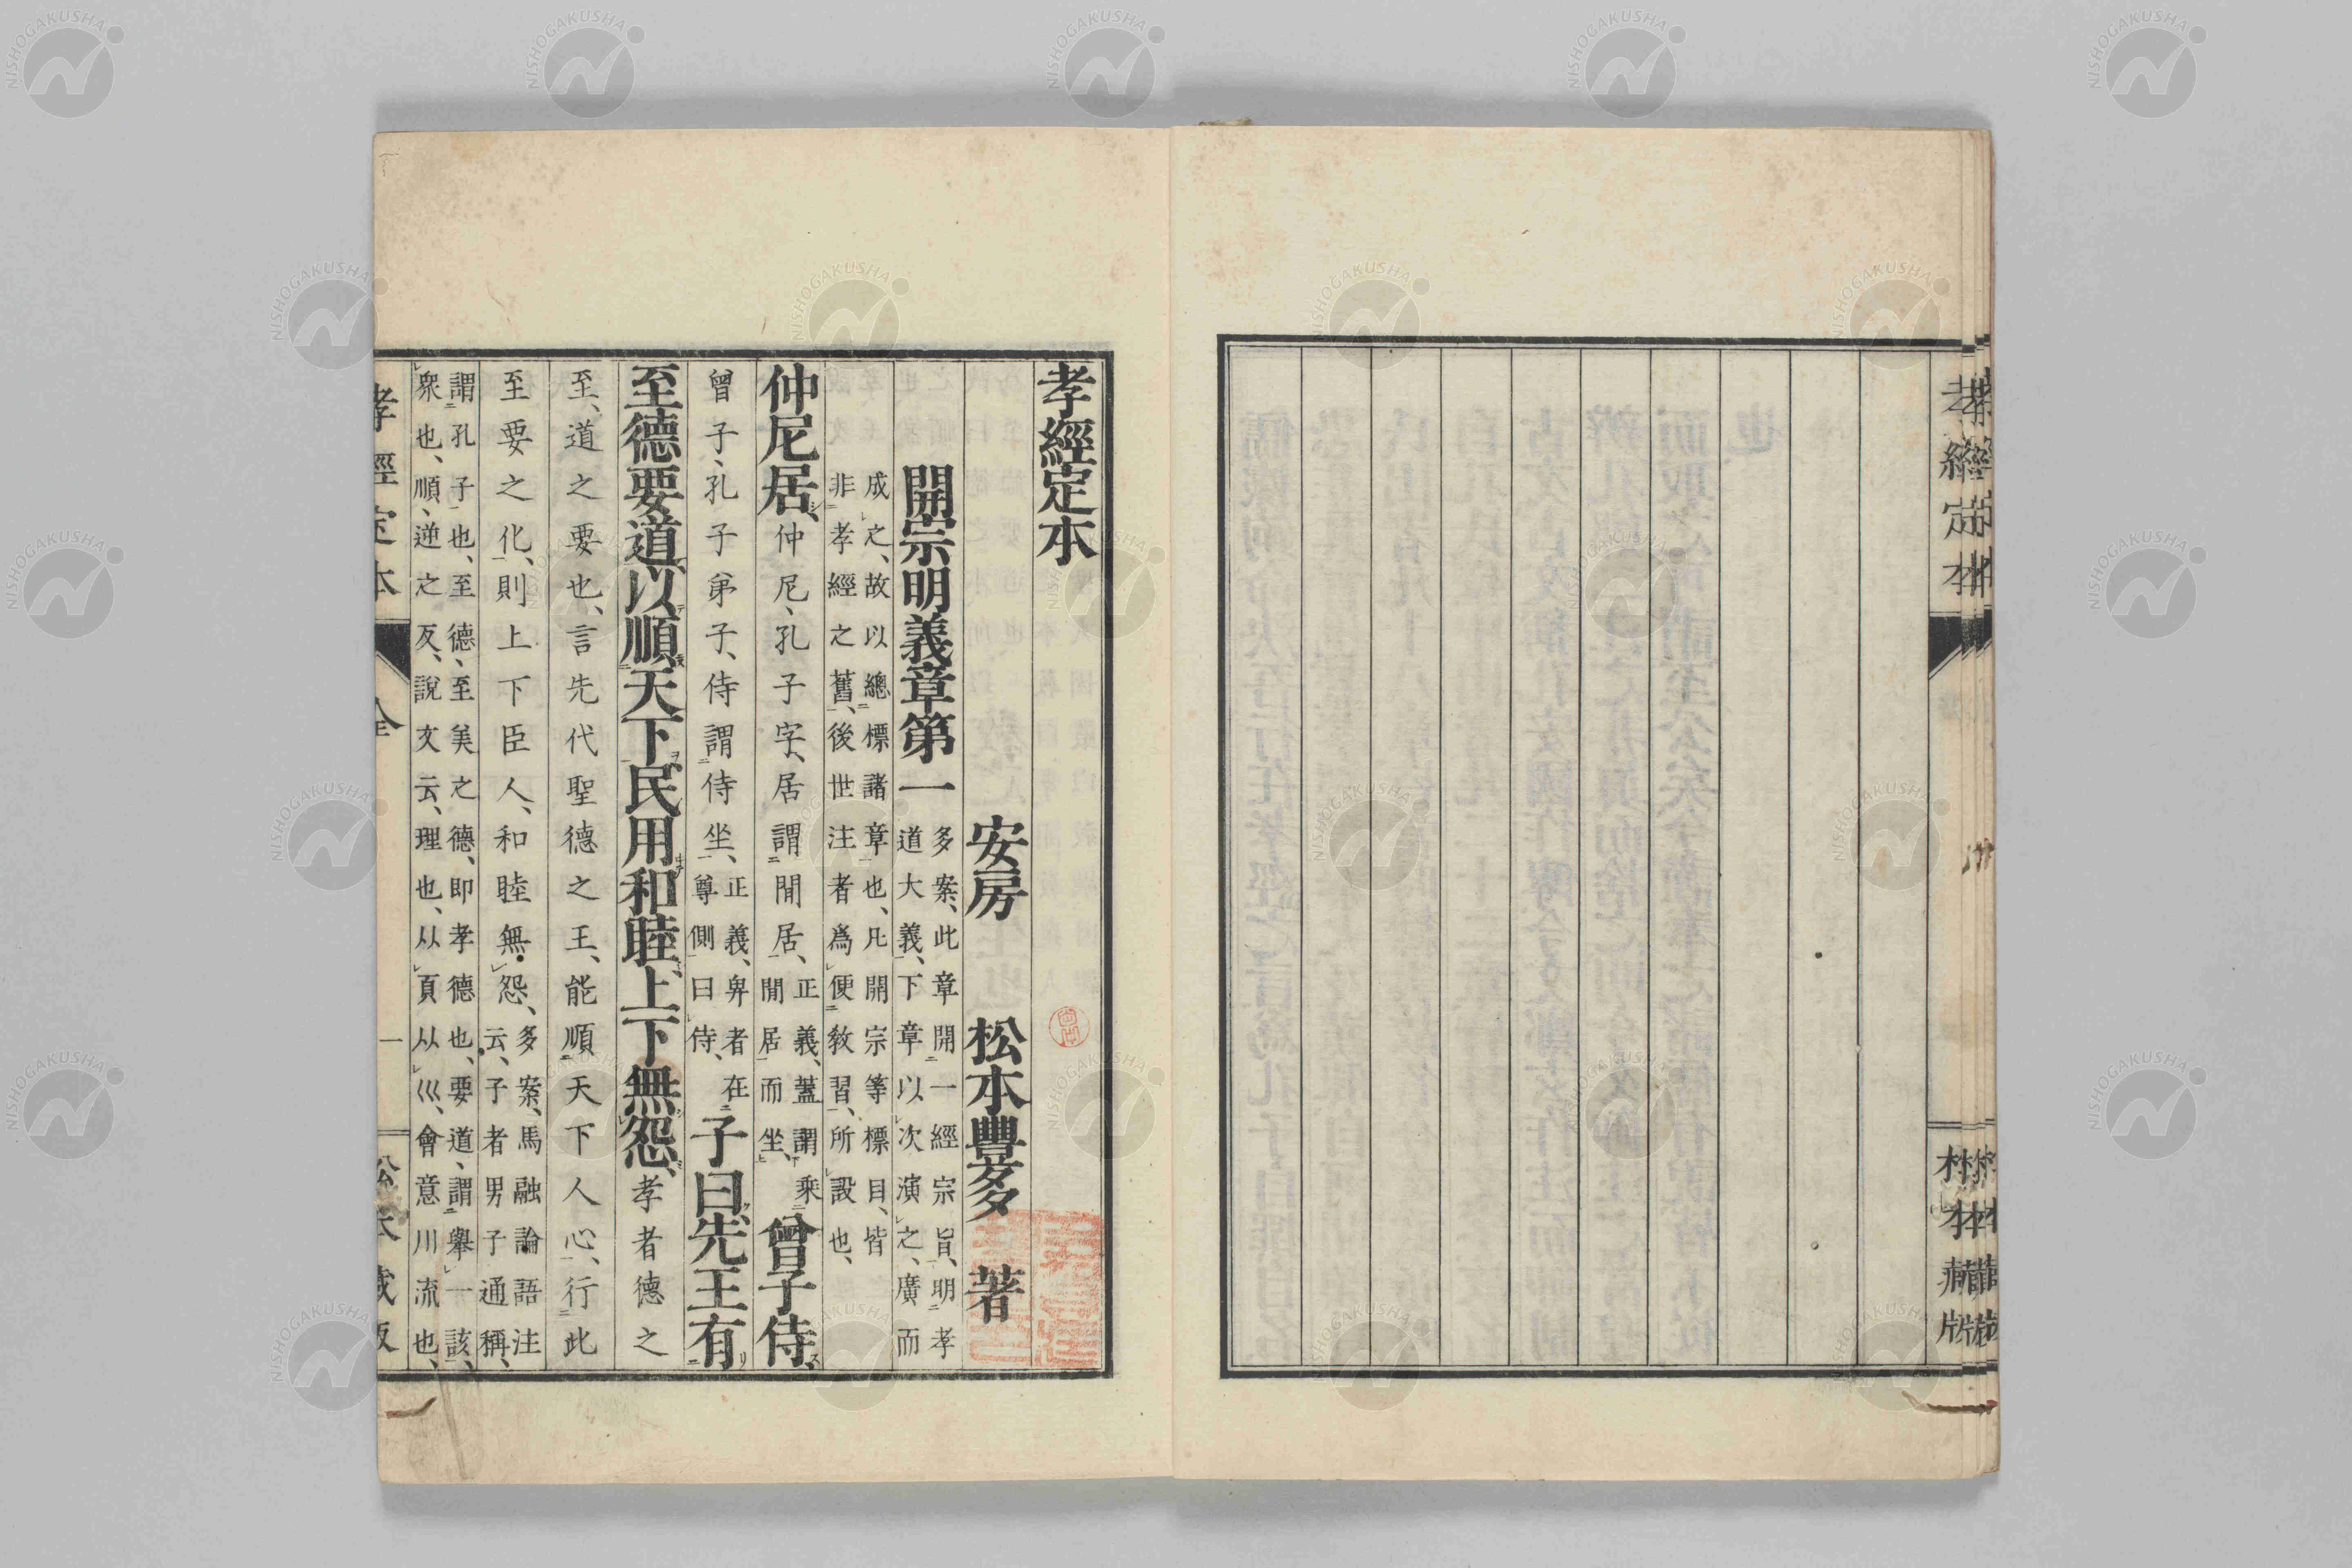 孝經定本
松本藏版
孝經定本
安房　松本豐多　著
開宗明義章第一
多案、此章開一經宗旨、明孝
道大義、下章以次演之、廣而
成之、故以總標諸章也、凡開宗等標目、皆
非孝經之舊、後世注者爲便敎習、所設也、
仲尼居、仲尼、孔子字、居謂閒居、
正義、蓋謂乘
閒居而坐、
曾子侍
曾子、孔子弟子、侍謂侍坐、
正義、卑者在
尊側曰侍、
子曰、先王有
至德要道、以順天下、民用和睦、上下無怨、孝者德之
至、道之要也、言先代聖德之王、能順天下人心、行此
至要之化、則上下臣人、和睦無怨、
多案、馬融論語注
云、子者男子通稱、
謂孔子也、至德、至美之德、即孝德也、要道、謂擧一該
衆也、順、逆之反、說文云、理也、从頁从巛、會意川流也、
孝經定本　全　一　松本藏版
NISHOGAKUSHA